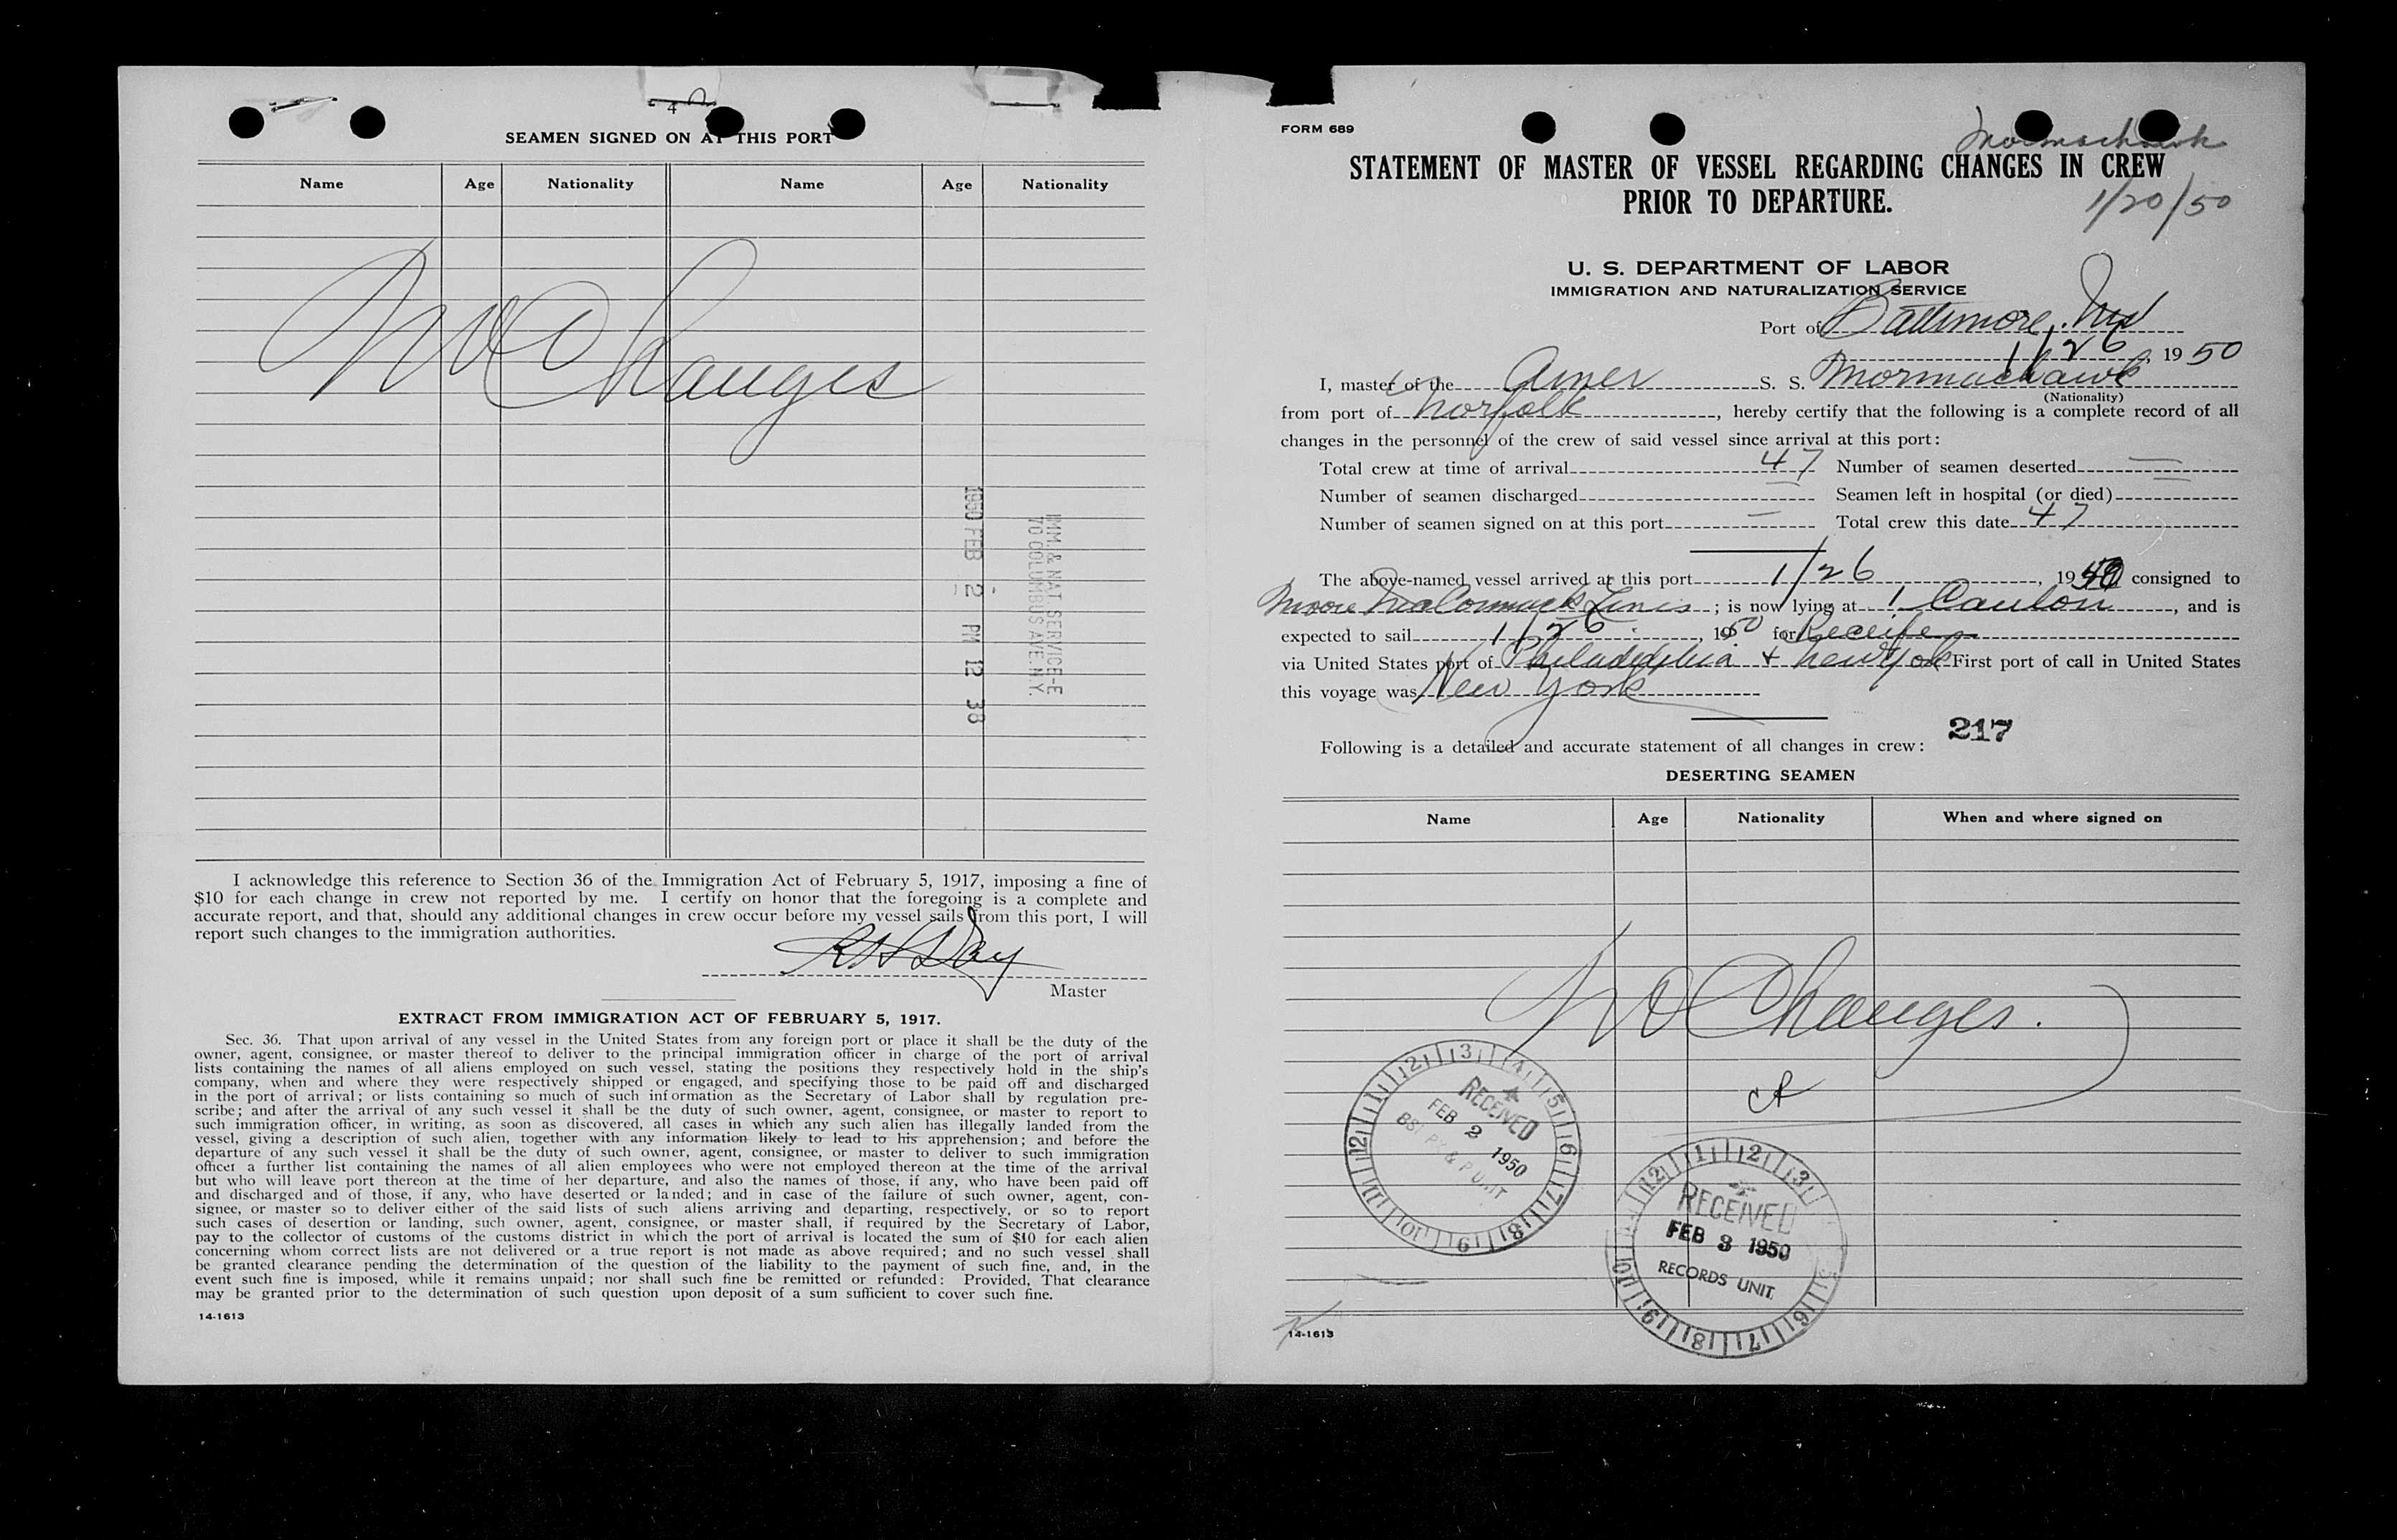 4
SEAMEN SIGNED ON AT THIS PORT
Name Age Nationality Name Age Nationality
No Changes
1950 FEB 2 PM 12 38
IMM. & NAT. SERVICE-E
70 COLUMBUS AVE. N.Y.
I acknowledge this reference to Section 36 of the Immigration Act of February 5, 1917, imposing a fine of
$10 for each change in crew not reported by me. I certify on honor that the foregoing is a complete and
accurate report, and that, should any additional changes in crew occur before my vessel sails from this port, I will
report such changes to the immigration authorities.
Day
Master
EXTRACT FROM IMMIGRATION ACT OF FEBRUARY 5, 1917.
Sec. 36. That upon arrival of any vessel in the United States from any foreign port or place it shall be the duty of the
owner, agent, consignee, or master thereof to deliver to the principal immigration officer in charge of the port of arrival
lists containing the names of all aliens employed on such vessel, stating the positions they respectively hold in the ship's
company, when and where they were respectively shipped or engaged, and specifying those to be paid off and discharged
in the port of arrival; or lists containing so much of such information as the Secretary of Labor shall by regulation pre-
scribe; and after the arrival of any such vessel it shall be the duty of such owner, agent, consignee, or master to report to
such immigration officer, in writing, as soon as discovered, all cases in which any such alien has illegally landed from the
vessel, giving a description of such alien, together with any information likely to lead to his apprehension; and before the
departure of any such vessel it shall be the duty of such owner, agent, consignee, or master to deliver to such immigration
officer a further list containing the names of all alien employees who were not employed thereon at the time of the arrival
but who will leave port thereon at the time of her departure, and also the names of those, if any, who have been paid off
and discharged and of those, if any, who have deserted or landed; and in case of the failure of such owner, agent, con-
signee, or master so to deliver either of the said lists of such aliens arriving and departing, respectively, or so to report
such cases of desertion or landing, such owner, agent, consignee, or master shall, if required by the Secretary of Labor,
pay to the collector of customs of the customs district in which the port of arrival is located the sum of $10 for each alien
concerning whom correct lists are not delivered or a true report is not made as above required; and no such vessel shall
be granted clearance pending the determination of the question of the liability to the payment of such fine, and, in the
event such fine is imposed, while it remains unpaid; nor shall such fine be remitted or refunded: Provided, That clearance
may be granted prior to the determination of such question upon deposit of a sum sufficient to cover such fine.
14-1613
FORM 689
Mormachawk
STATEMENT OF MASTER OF VESSEL REGARDING CHANGES IN CREW
PRIOR TO DEPARTURE.
1/20/50
U. S. DEPARTMENT OF LABOR
IMMIGRATION AND NATURALIZATION SERVICE
Port of Baltimore, Md
1/26, 1950
I, master of the Amer S. S. Mormachawk
(Nationality)
from port of Norfolk, hereby certify that the following is a complete record of all
changes in the personnel of the crew of said vessel since arrival at this port:
Total crew at time of arrival 47 Number of seamen deserted —
Number of seamen discharged — Seamen left in hospital (or died) —
Number of seamen signed on at this port — Total crew this date 47
The above-named vessel arrived at this port 1/26, 1950 consigned to
Moore McCormack Lines; is now lying at 1 Canton, and is
expected to sail 1/26, 1950 for Receife
via United States port of Philadelphia + New York First port of call in United States
this voyage was New York
217
Following is a detailed and accurate statement of all changes in crew:
DESERTING SEAMEN
Name Age Nationality When and where signed on
No Changes.
RECEIVED
FEB 2 1950
RECEIVED
FEB 3 1950
RECORDS UNIT
14-1613